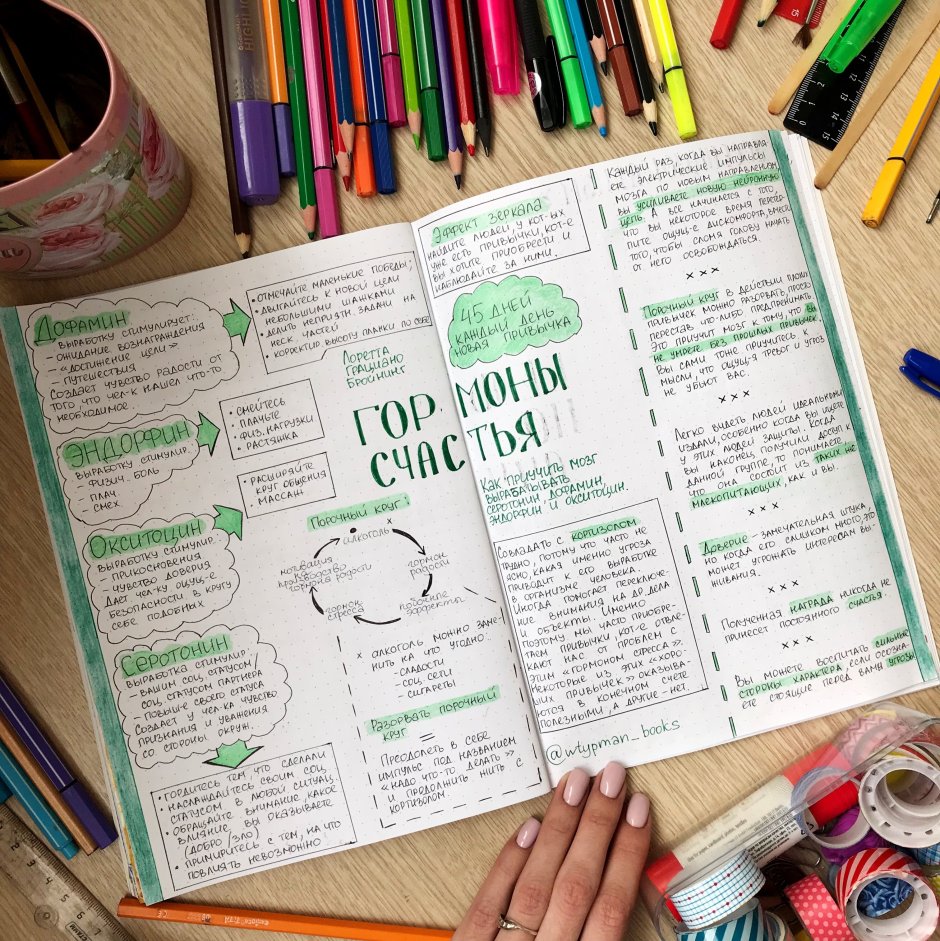 Дофамин
выработку стимулирует:
- ожидание вознаграждения
- «достижение цели»
- путешествия
Создает чувство радости от
того, что чел-к нашел что-то
необходимое.
• отмечайте маленькие победы;
• двигайтесь к новой цели
небольшими шажками
• делить неприятн. задачи на
неск. частей
• корректир. высоту планки по себе
Эндорфин
выработку стимулир.
- физич. боль
- плач
- смех.
• смейтесь
• плачьте
• физ. нагрузки
• растяжка
Окситоцин
выработку стимулир.:
- прикосновения
- чувство доверия
Дает чел-ку ощущ-е
безопасности в кругу
себе подобных.
• расширяйте
круг общения
• массаж
Серотонин
выработка стимулир.:
- вашим соц. статусом/
соц. статусом партнера
- повыш-е своего статуса
Создает у чел-ка чувство
признания и уважения
со стороны окруж.
• гордитесь тем, что сделали
• наслаждайтесь своим соц.
статусом в любой ситуац.
• обращайте внимание, какое
влияние вы оказываете
(добро/зло)
• примиритесь с тем, на что
повлиять невозможно.
Лоретта
Грациано
Бройнинг
ГОРМОНЫ
СЧАСТЬЯ
Как приучить мозг
вырабатывать
серотонин, дофамин,
эндорфин и окситоцин.
Порочный круг:
алкоголь x
гормон
радости
побочные
эффекты
гормон
стресса
мотивация
гормона радости
x алкоголь можно заме-
нить на что угодно:
- сладости
- соц. сети
- сигареты
Разорвать порочный
круг
=
Преодолеть в себе
импульс под названием
«надо что-то делать»
и продолжить жить с
кортизолом.
Эффект зеркала
найдите людей, у кот-ых
уже есть привычки, кот-е
вы хотите приобрести и
наблюдайте за ними.
45 дней
каждый день
новая привычка
Совладать с кортизолом
трудно, потому что часто не
ясно, какая именно угроза
приводит к его выработке
в организме человека.
Иногда помогает переключе-
ние внимания на др. дела
и объекты. Именно
поэтому мы часто приобре-
таем привычки, кот-е отвле-
кают нас от проблем с
этим «гормоном стресса».
Некоторые из этих «хоро-
ших привычек» оказыва-
ются в конечном счете
полезными, а другие - нет.
@wtypman_books
Каждый раз, когда вы направля-
ете электрические импульсы
мозга по новым направлениям,
вы усиливаете новую нейронную
цепь. А все начинается с того,
что вы некоторое время терпите
ощущ-е дискомфорта, вместо
того, чтобы сломя голову начать
от него освобождаться.
x x x
Порочный круг в действии плохих
привычек можно разорвать, просто
перестав что-либо предпринимать.
Это приучит мозг к тому, что вы
не умрете без прошлых привычек.
Вы сами тоже приучитесь к
мысли, что ощущ-я тревог и угроз
не убьют вас.
x x x
Легко видеть людей идеальными
издали, особенно когда вы ищете
у этих людей защиты. Когда
вы наконец получили доступ к
данной группе, то понимаете,
что она состоит из таких же
млекопитающих, как и вы.
x x x
Доверие - замечательная штука,
но когда его слишком много, это
может угрожать интересам вы-
живания.
x x x
Полученная награда никогда не
принесет постоянного счастья.
x x x
Вы можете воспитать сильные
стороны характера, если осозна-
ете стоящие перед вами угрозы